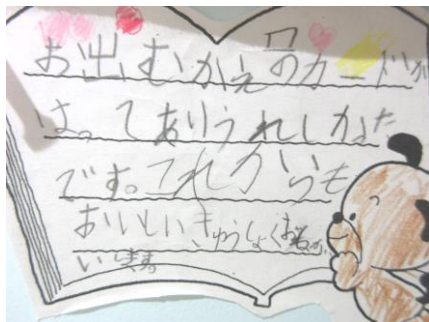 お出むかえのカードが
はってありうれしかった
です。これからも
おいしいきゅうしょくお
います。